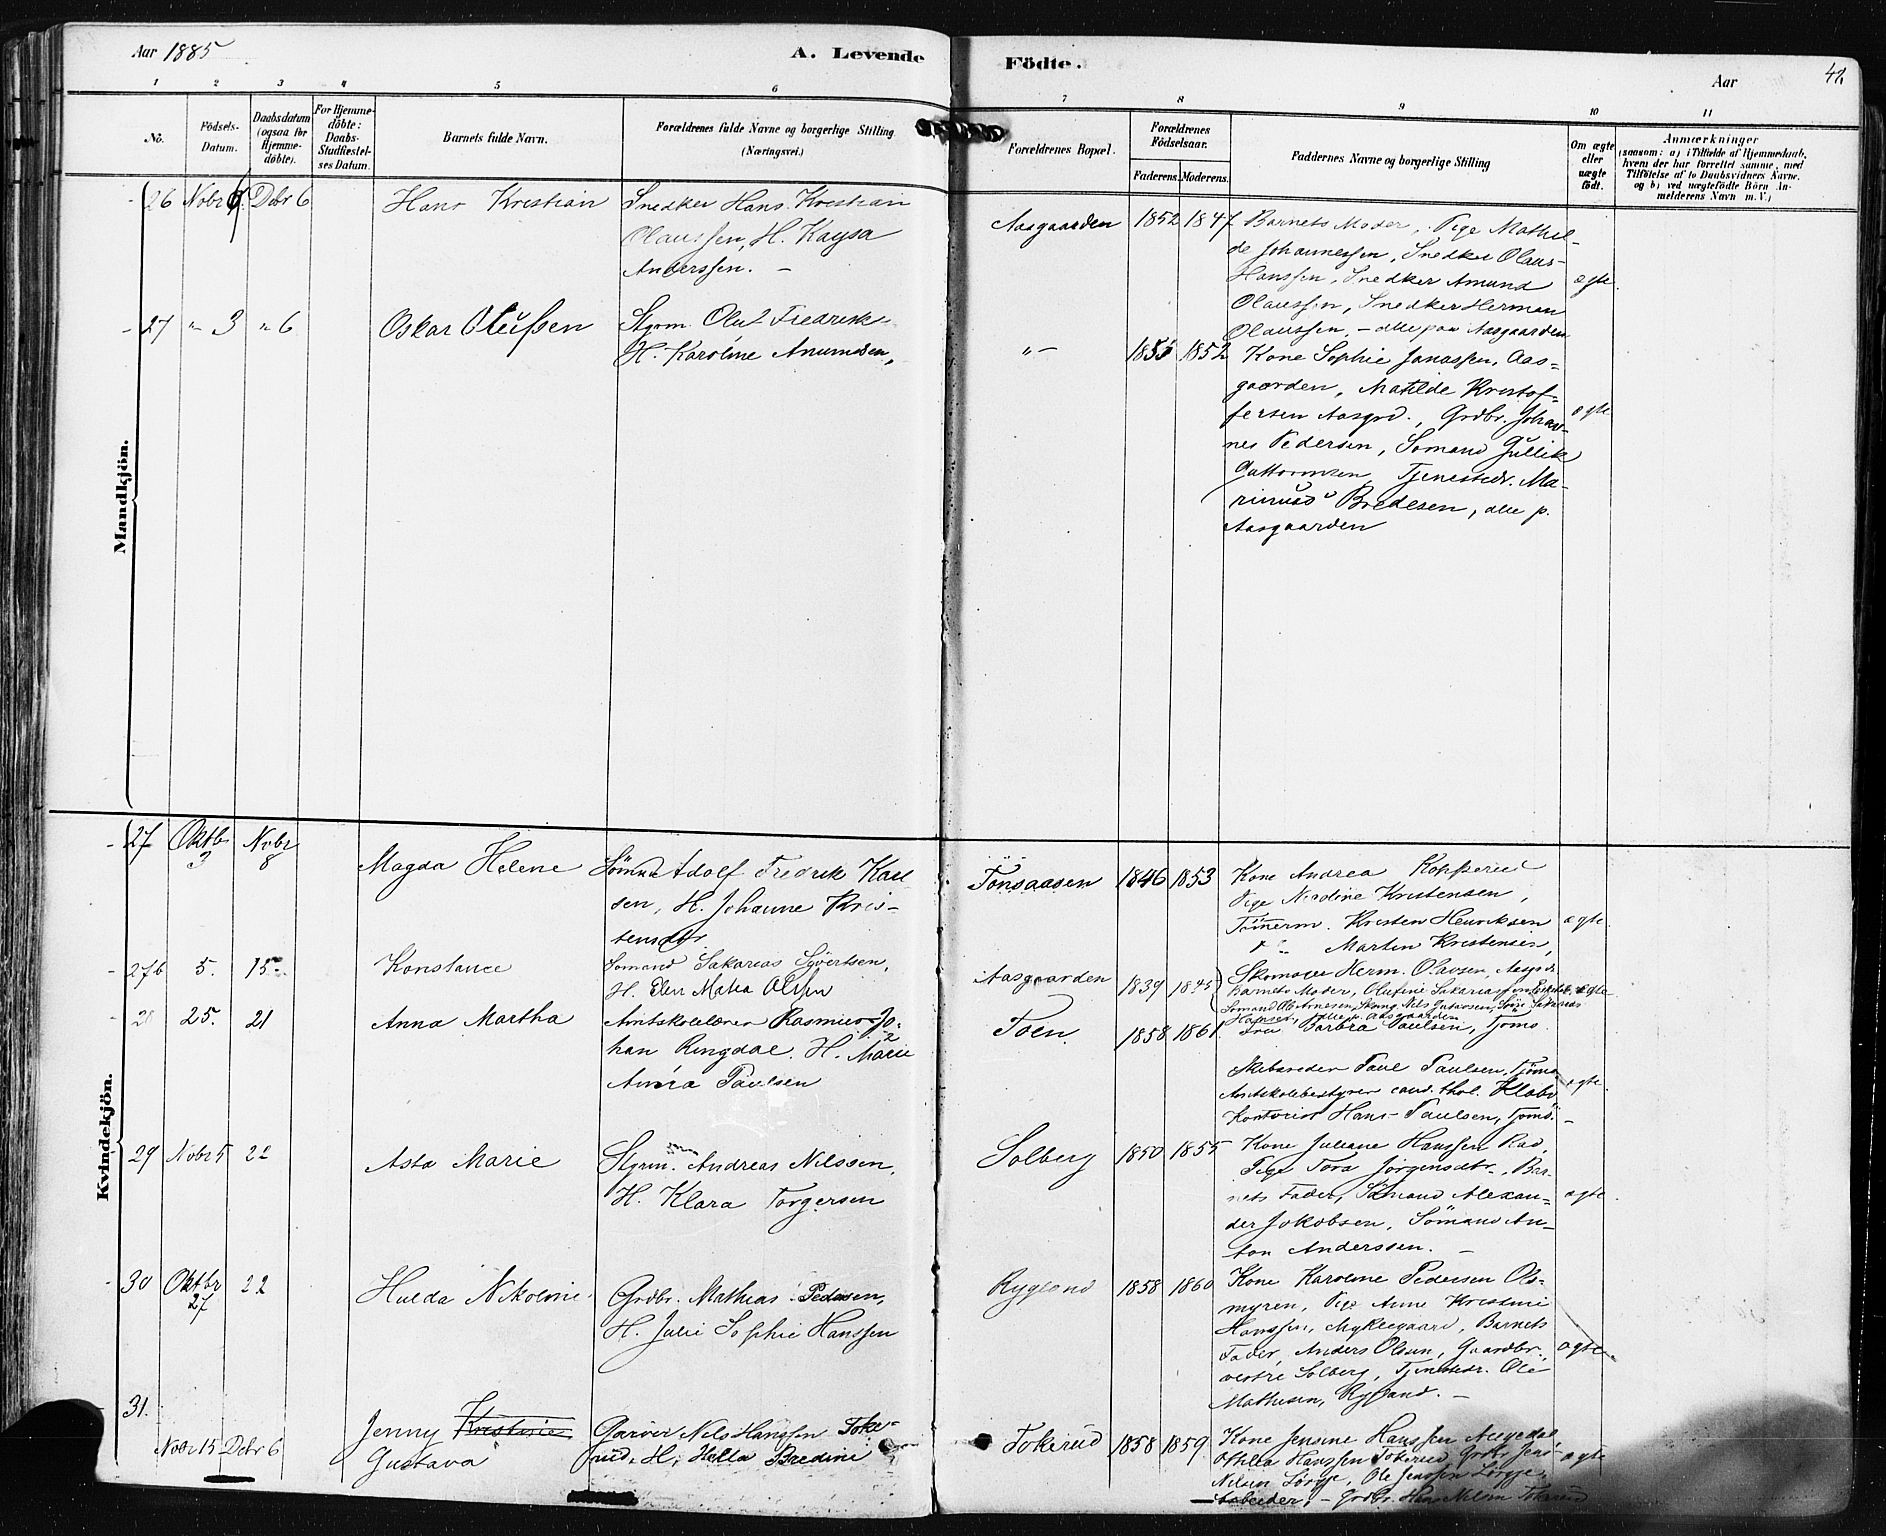 Aar 1885
A. Levende
Födte.
Aar
42
1 2 3 4 5 6 7 8 9 10 11
No.
Födsels-Datum.
Daabsdatum (ogsaa for Hjemme-döbte).
For Hjemme-döbte: Daabs-Stadfæstel-ses Datum.
Barnets fulde Navn.
Forældrenes fulde Navne og borgerlige Stilling (Næringsvei.)
Forældrenes Bopæl.
Forældrenes Födselsaar.
Faderens. Moderens.
Faddernes Navne og borgerlige Stilling
Om ægte eller uægte født.
Anmærkninger
(saasom: a) i Tilfælde af Hjemmedaab,
hvem der har forrettet samme, med
Tilföielse af to Daabsvidners Navne,
og b) ved uægtefödte Börn An-
melderens Navn m. V.)
Mandkjön.
26 Nobr Debr 6 Hans Kristian
Snedker Hans Kristian
Olaussen, H. Kaysa
Anderssen. –
Aasgaarden 1852 1847
Barnets Moder, Pige Mathil-
de Johannessen, Snedker Olaus
Hanssen, Snedker Amund
Olaussen, Snedker Herman
Olaussen, – alle paa Aasgaarden
ægte.
27 " 3 " 6 Oskar Olufsen
Styrm. Oluf Fredrik
H. Karoline Anundsen,
"– 1855 1852
Kone Sophie Jonassen, Aas-
gaarden, Matilde Kristof-
fersen Aasgrd., Grdbr. Johan-
nes Pedersen, Sömand Gullik
Guttormsen, Tjenestedr. Ma-
rinius Bredesen, alle p.
Aasgaarden
ægte
Kvindekjön.
27 Oktbr 3 Nobr 8 Magda Helene
Sömand Adolf Fredrik Karl
sen, H. Johanne Kris-
tensdtr.
Tonsaasen 1846 1853
Kone Andrea
Pige Nardine Kristensen,
Tömerm. Kristen Henriksen
" " Martin Kristensen,
ægte
27b 5. 15 Konstance
Sömand Sakarias Syvertsen,
H. Elen Matea Olsen
Aasgaarden 1839 1845
Skomager Herm. Olavsen, Aasgrd.
Barnets Moder, Olufine Sakariassen
Sömand Ole Arnesen,
alle p. Aasgaarden
ægte
28 25. 21 Anna Martha
Amtskolelærer Rasmus Jo-
han Ringdal. H. Marie
Amora Paulsen
Toen. 1858 1861.
Fru Barbra Paulsen, Tjömö.
Skibsreder Paul Paulsen, Tjömö
Amtskolebestyrer cand. thol. Klobö
Kontorist Hans Paulsen, Tjömö. –
ægte.
29 Nobr 5 22 Asta Marie
Styrm. Andreas Nilssen,
H. Klara Torgersen
Solberg 1850 1855
Kone Juliane Hanssen Rad,
Pige Tora Jörgensdtr., Bar-
nets Fader, Sömand Alexan-
der Jokobsen, Sömand An-
ton Anderssen. –
ægte.
30 Oktbr 27 22 Hulda Nikoline
Grdbr. Mathias Pedersen,
H. Julie Sophie Hanssen
Rygland 1858 1860
Kone Karoline Pedersen Ols-
myren, Pige Anne Kristine
Hanssen, Myklegaard, Barnets
Fader, Anders Olsen, Gaardbr.,
vestre Solberg, Tjenestedr. Ole
Mathisen, Rygland. –
ægte.
31. Nobr 15 Debr 6 Jenny Kristine
Gustava
Garver Nils Hanssen Toke-
rud, H. Hella Bredine
Tokerud 1858 1859
Kone Jensine Hanssen
Othilla Hanssen Tokerud, Grdbr.
Nilsen Lörge, Ole Jenssen Lörge,
Arbeider, – Grdbr. Hans Nilsen Tokerud
ægte